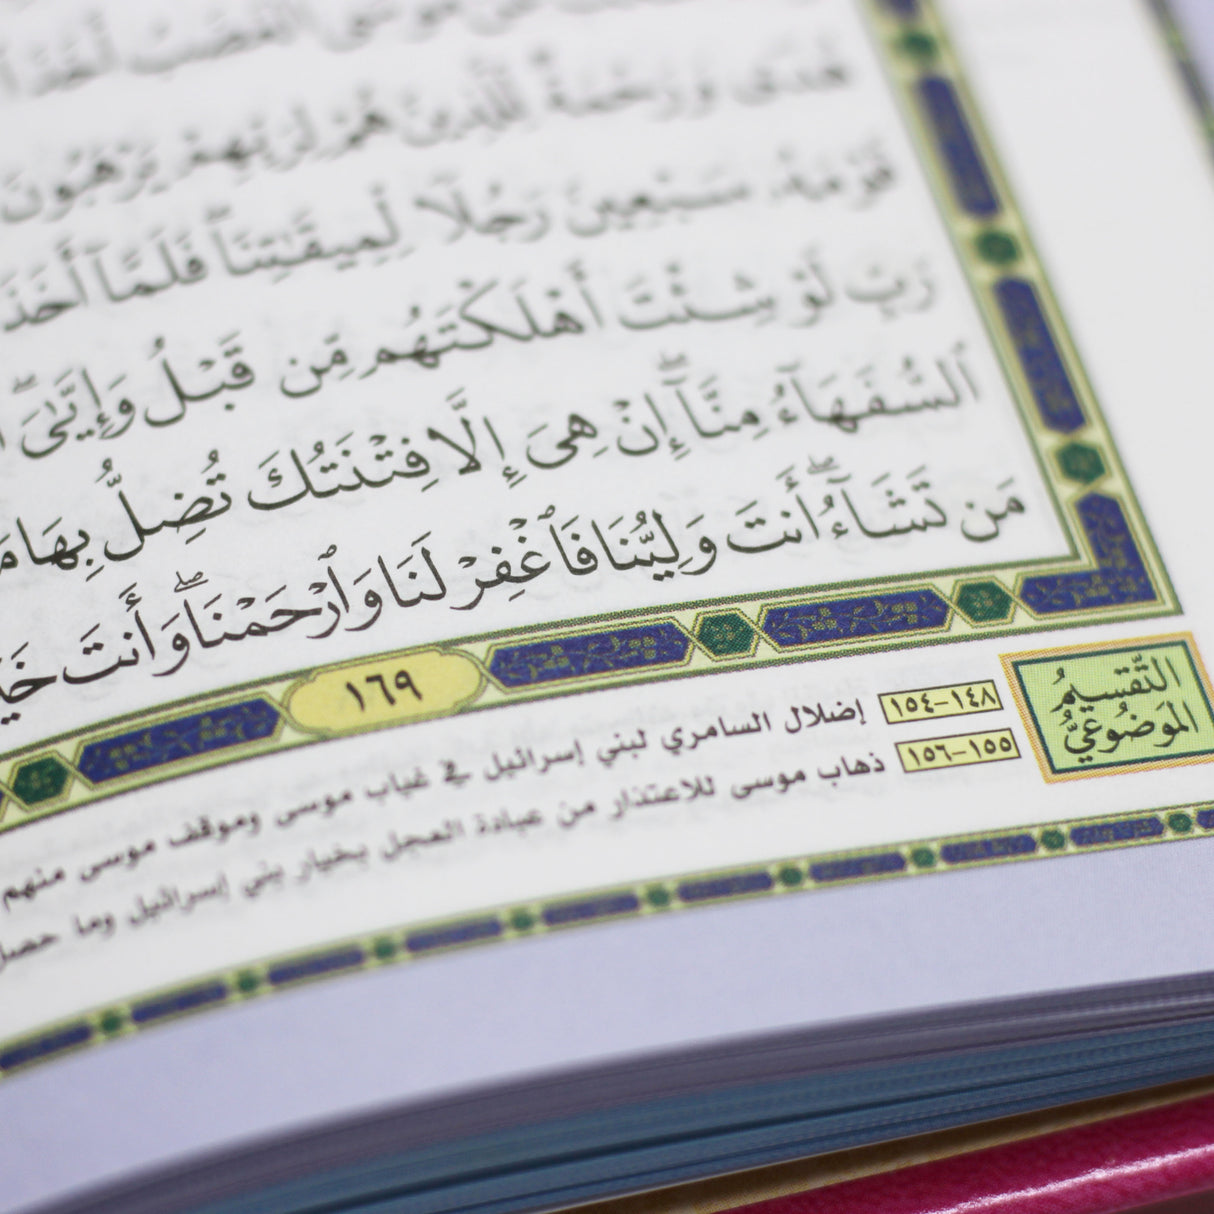 عن موسى الغضب أخذ
هُدًى وَرَحْمَةٌ لِّلَّذِينَ هُمْ لِرَبِّهِمْ يَرْهَبُونَ
قَوْمَهُۥ سَبْعِينَ رَجُلًا لِّمِيقَٰتِنَا ۖ فَلَمَّآ أَخَذَ
رَبِّ لَوْ شِئْتَ أَهْلَكْتَهُم مِّن قَبْلُ وَإِيَّٰىَ ۖ
ٱلسُّفَهَآءُ مِنَّآ ۖ إِنْ هِىَ إِلَّا فِتْنَتُكَ تُضِلُّ بِهَا
مَن تَشَآءُ ۖ أَنتَ وَلِيُّنَا فَٱغْفِرْ لَنَا وَٱرْحَمْنَا ۖ وَأَنتَ
١٦٩
التَّقْسِيمُ
المَوْضُوعِيُّ
١٤٨-١٥٤ إضلال السامري لبني إسرائيل في غياب موسى وموقف موسى منهم
١٥٥-١٥٦ ذهاب موسى للاعتذار من عبادة العجل بخيار بني إسرائيل وما حصل